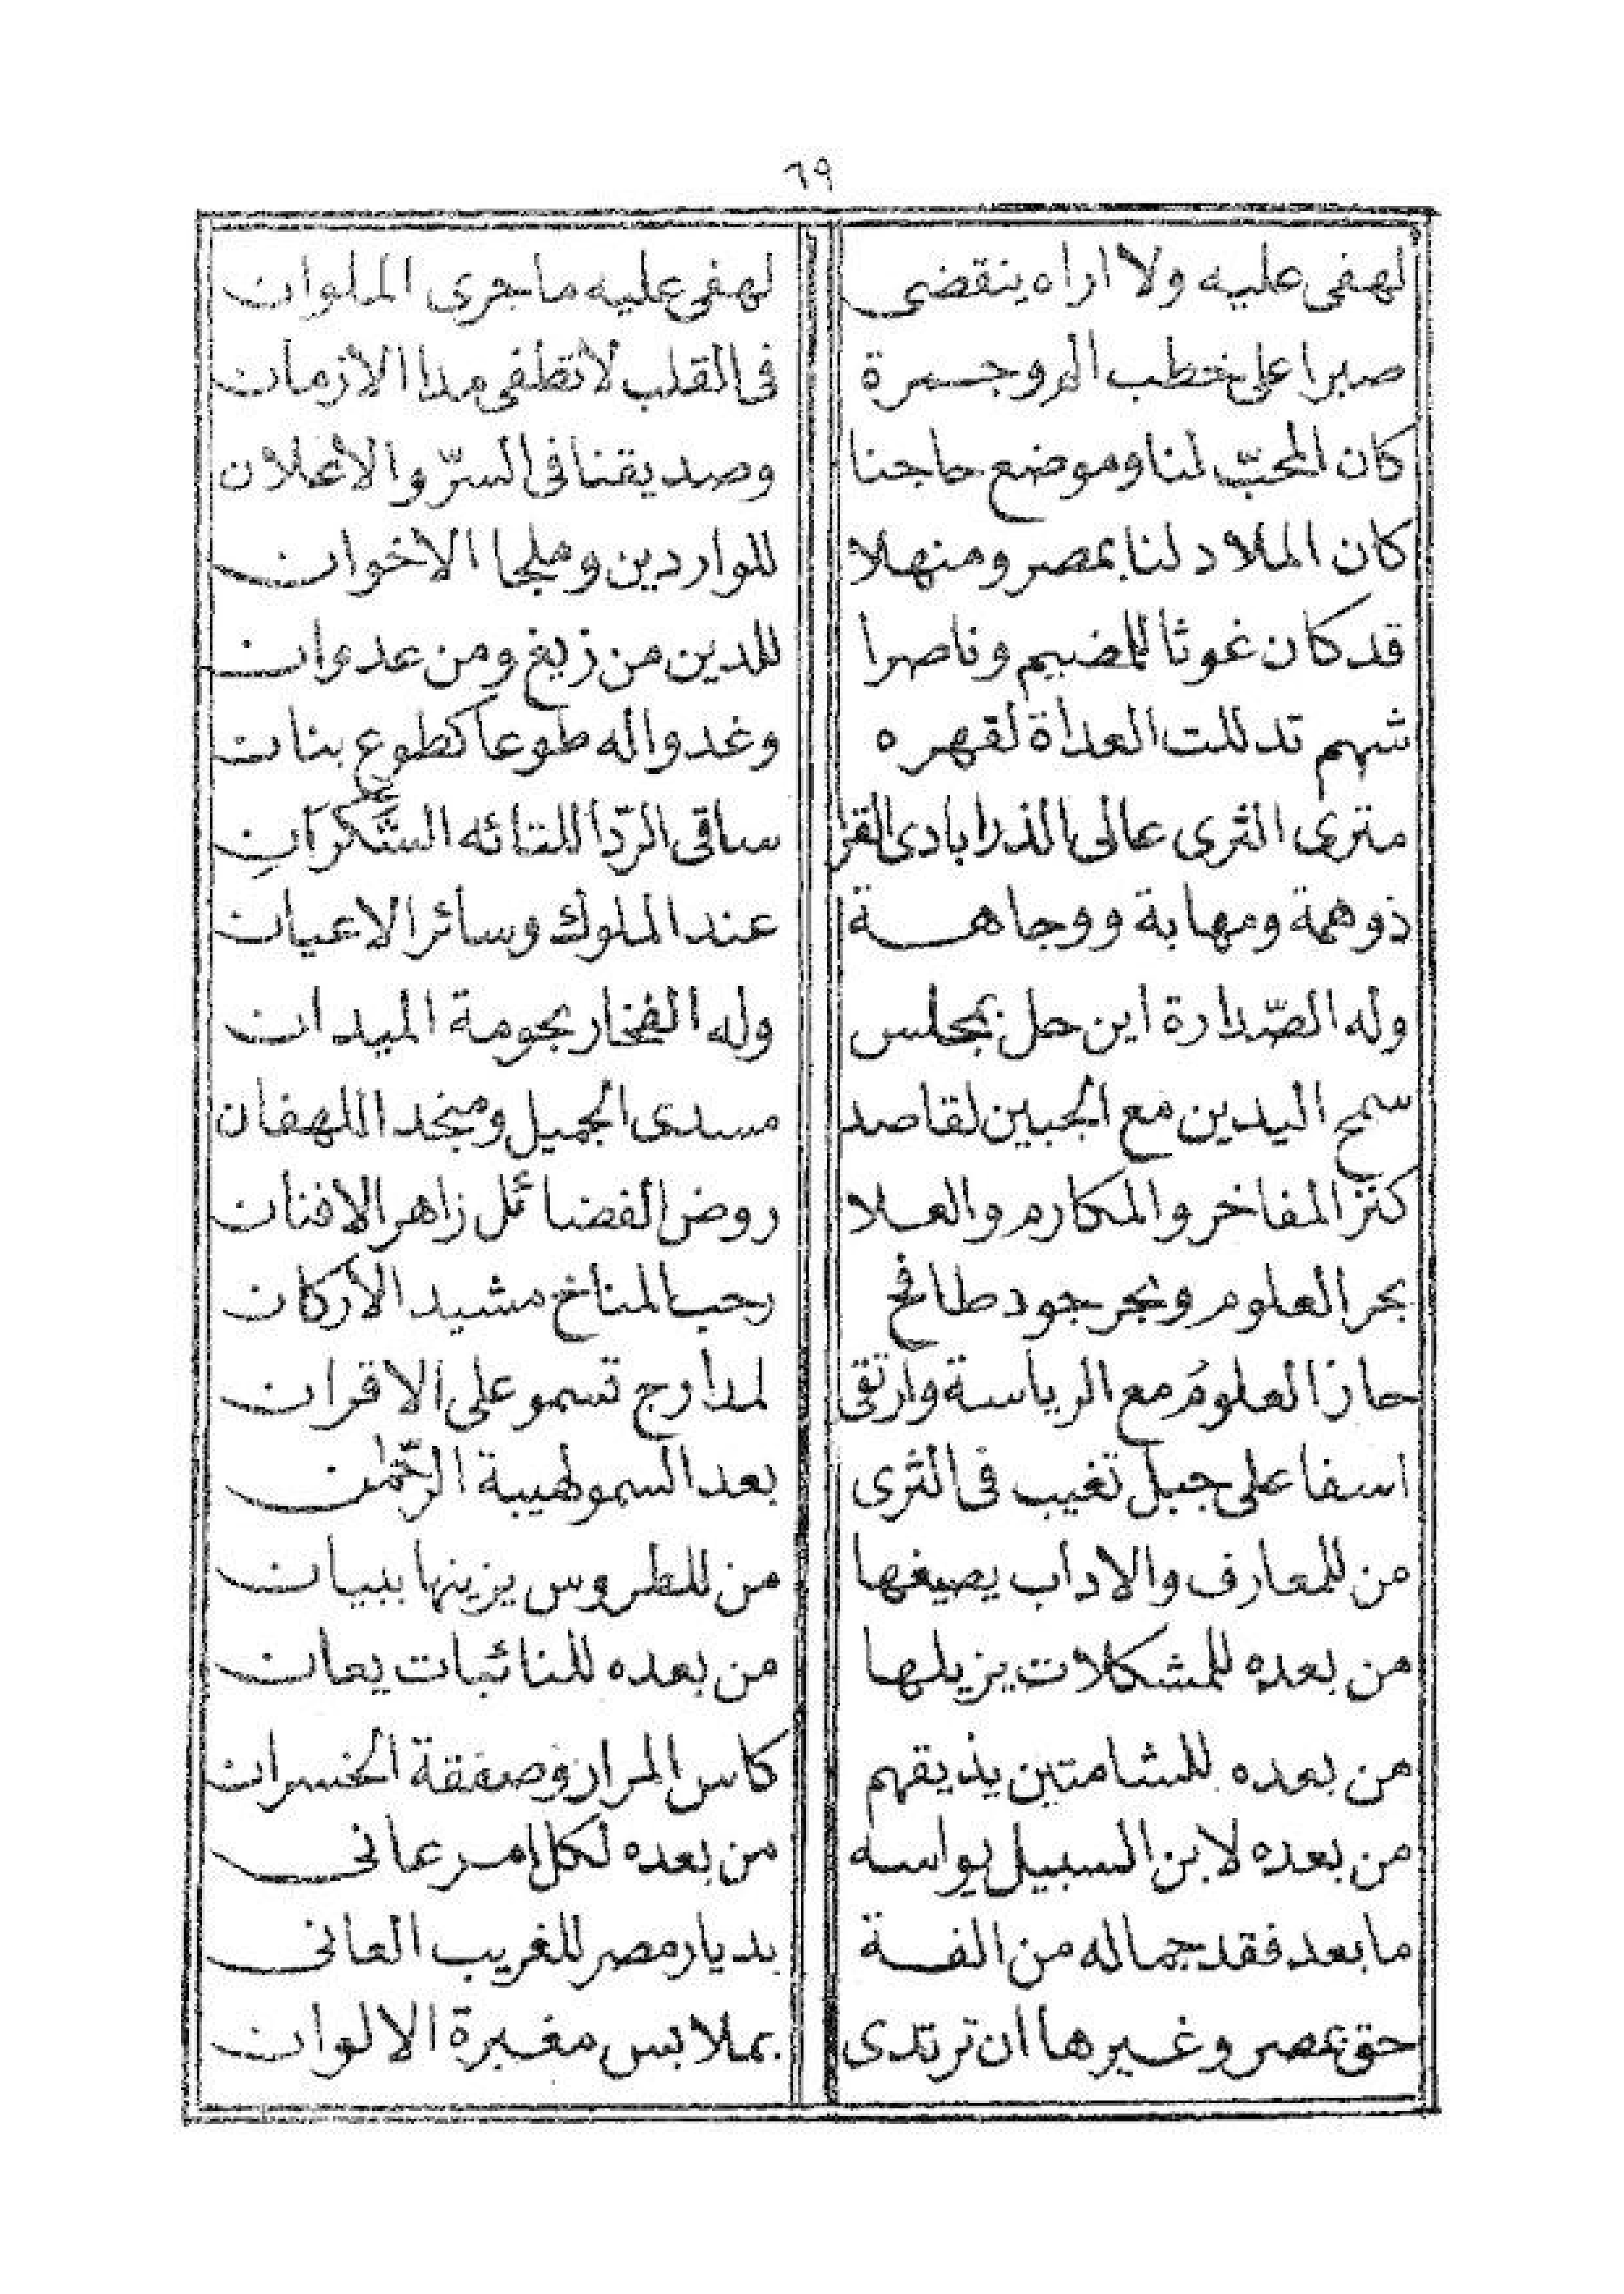 ٦٩
لهفى عليه ولا اراه ينقضى لهفى عليه ما جرى الملوان
صبرا على خطب الم وجمرة فى القلب لا تطفى مدا الازمان
كان المحبّ لنا وموضع حاجنا وصديقنا فى السرّ والاعلان
كان الملاد لنا بمصر ومنهلا للواردين وملجا الاخوان
قد كان غوثا للمضيم وناصرا للدين من زيغ ومن عدوان
شهم تدللت العداة لقهره وغدوا له طوعا كطوع بنان
مترى الثرى عالى الذرا بادى القرا ساقى الرّدا للتائه السَّكرانِ
ذوهمة ومهابة ووجاهة عند الملوك وسائر الاعيان
وله الصّدارة اين حل بمجلس وله الفخار بحومة الميدان
سمح اليدين مع الجبين لقاصد مسدى الجميل ومنجد اللهفان
كنز المفاخر والمكارم والعلا روض الفضائل زاهر الافنان
بحر العلوم وبحر جود طافح رحب المناخ مشيد الاركان
حاز العلومَ مع الرياسة وارتقى لمدارج تسمو على الاقران
اسفا على جبل تغيب فى الثرى بعد السمو لهيبة الرّحمٰن
من للمعارف والاداب يصيغها من للطروس يزينها ببيان
من بعده للمشكلات يزيلها من بعده للنائبات يعان
من بعده للشامتين يذيقهم كاس المرار وصفقة الخسران
من بعده لابن السبيل يواسه من بعده لكل امر عانى
ما بعد فقد جماله من الفة بديار مصر للغريب العانى
حق بمصر وغيرها ان ترتدى بملابس مغبرة الالوان